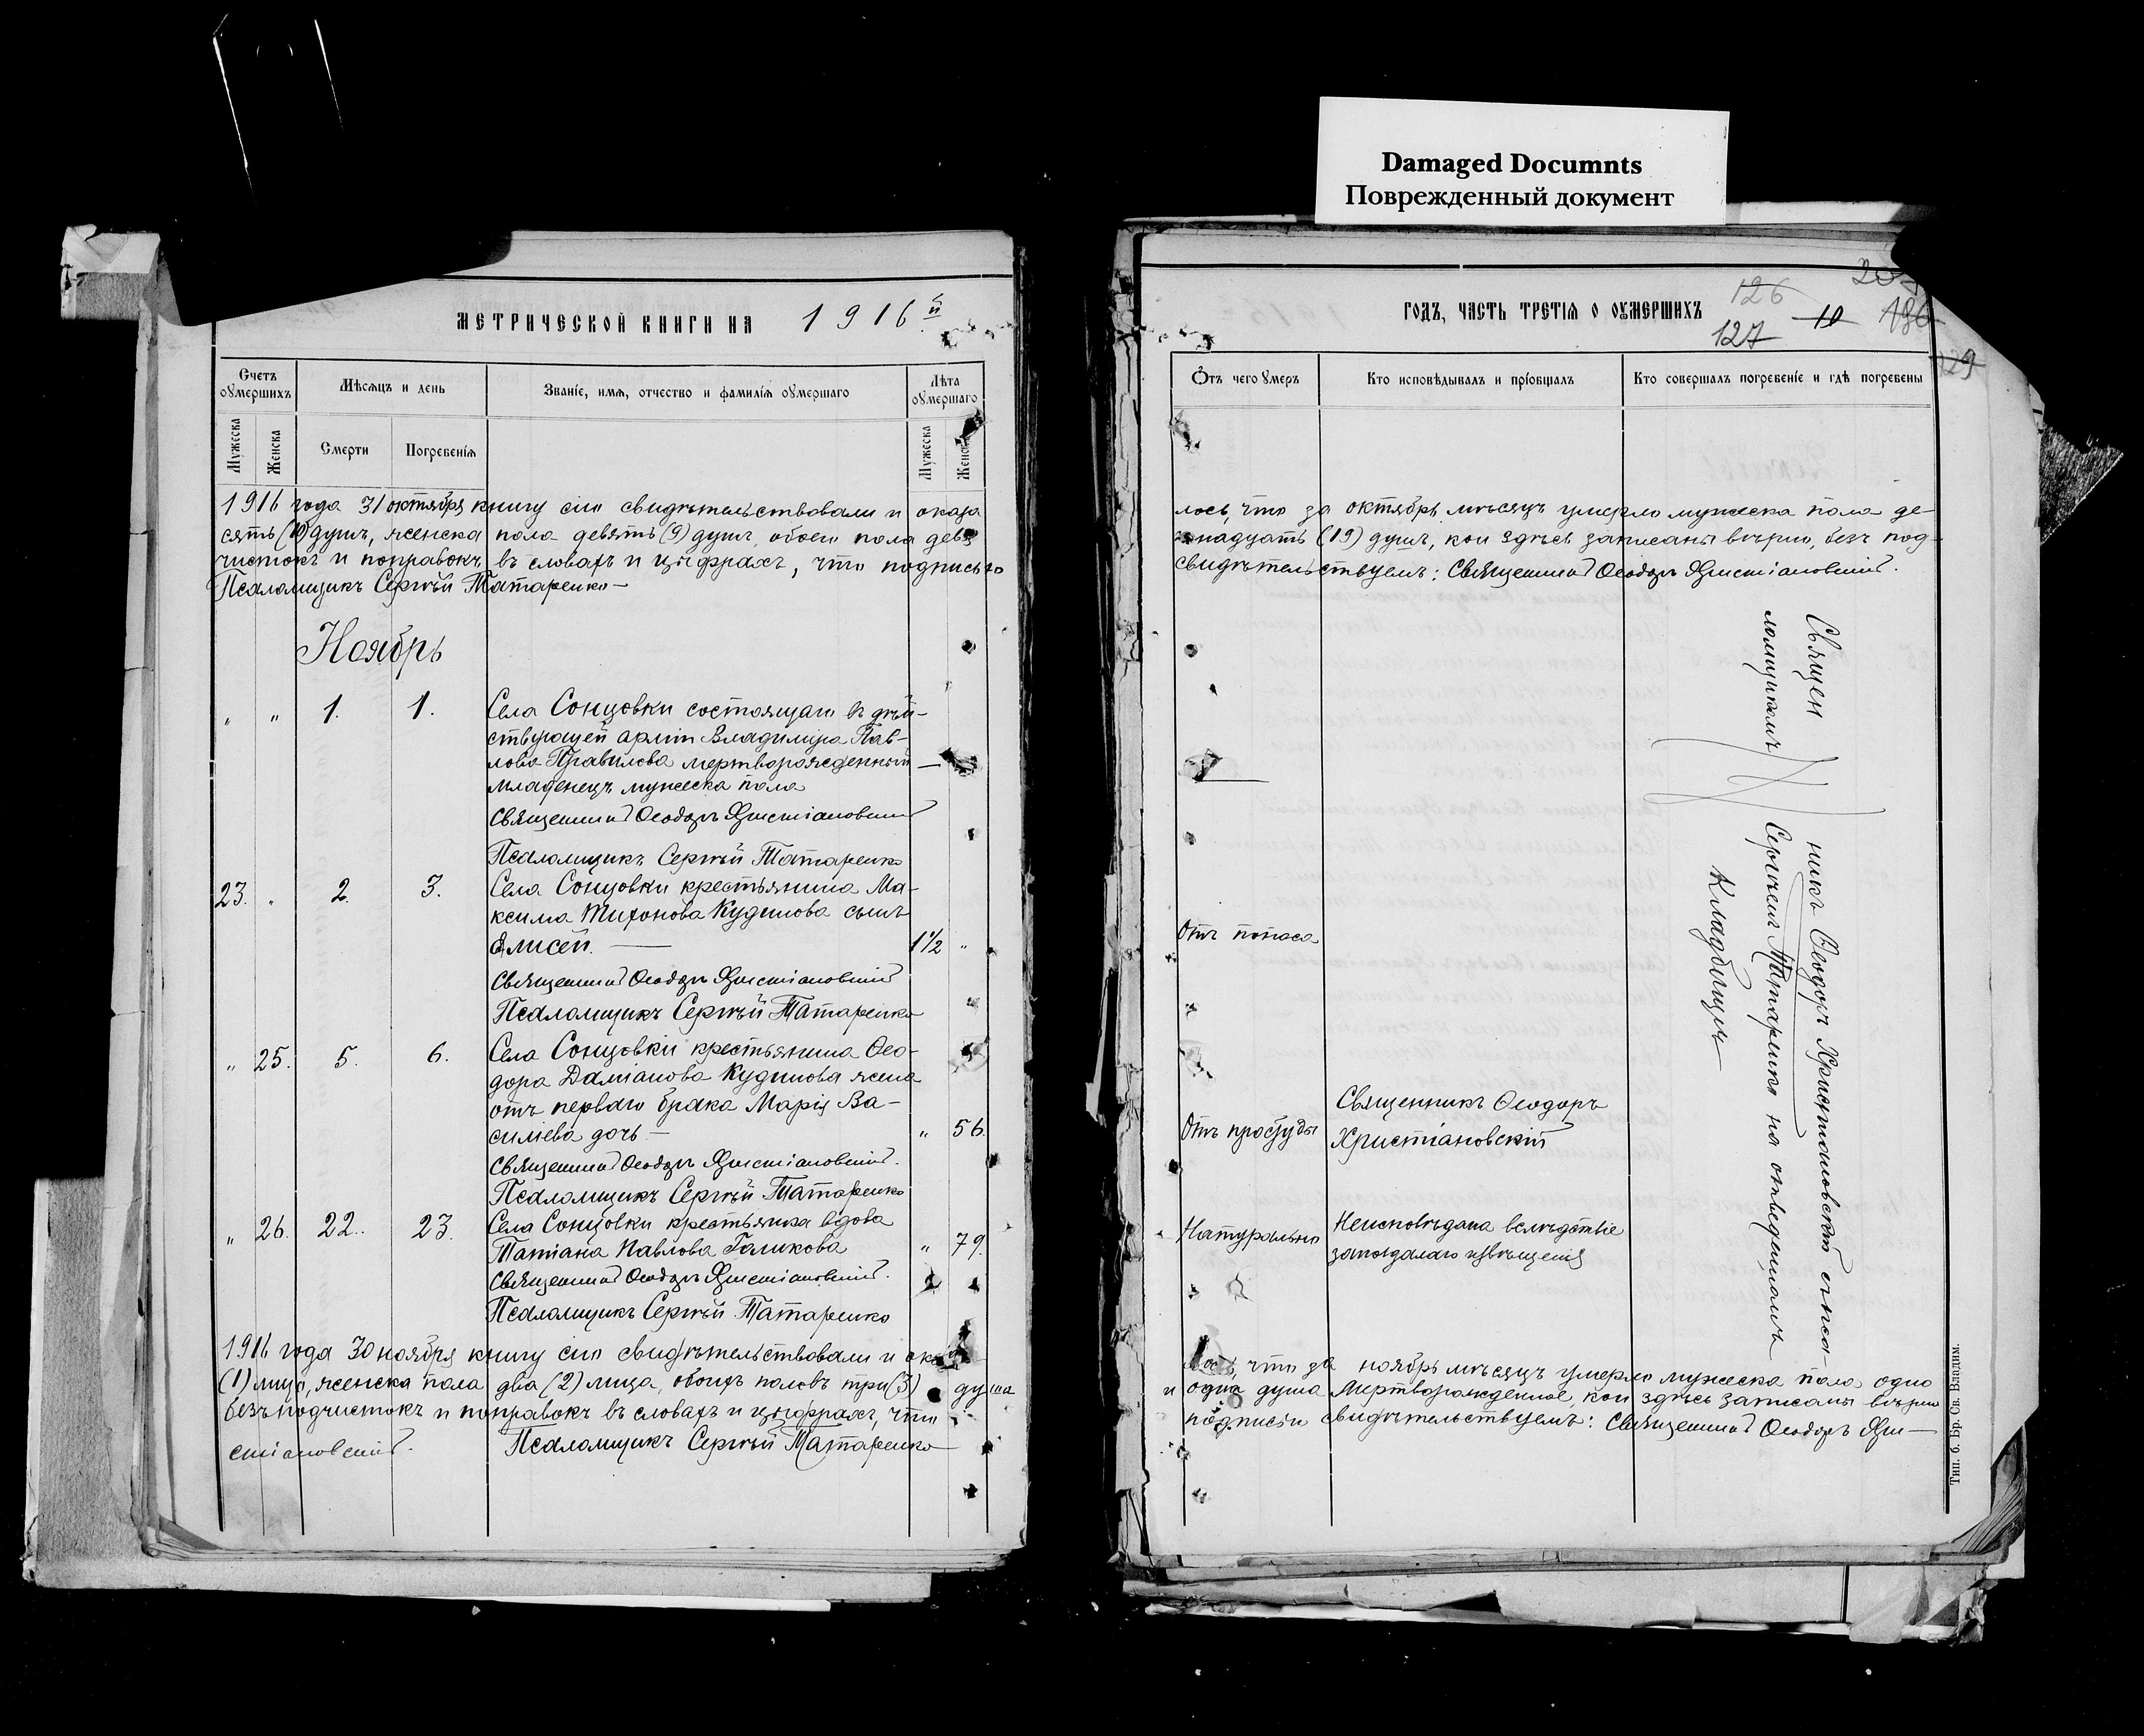 Damaged Documnts
Поврежденный документ
МЕТРИЧЕСКОЙ КНИГИ НА 1916 й
Счетъ оумершихъ
Мѣсяцъ и день
Званіе, имя, отчество и фамилія оумершаго
Лѣта оумершаго
Мужеска
Женска
Смерти
Погребенія
Мужеска
Женск
1916 года 31 октября книгу сію свидѣтельствовали и оказа
сять (10) душъ, женска пола девять (9) душъ, обоего пола девя
чистокъ и поправокъ въ словахъ и цифрахъ, что подписью
Псаломщикъ Сергѣй Татаренко
Ноябрь
" " 1. 1. Села Сонцовки состоящаго въ дѣй-
ствующей арміи Владиміра Пав-
лова Правилова мертворожденный
младенецъ мужеска пола
Священникъ Ѳеодоръ Христіановскій
Псаломщикъ Сергѣй Татаренко
23. " 2. 3. Села Сонцовки крестьянина Ма-
ксима Тихонова Кудинова сынъ
Елисей. 1½ "
Священникъ Ѳеодоръ Христіановскій
Псаломщикъ Сергѣй Татаренко
" 25. 5. 6. Села Сонцовки крестьянина Ѳео-
дора Даміанова Кудинова жена
отъ перваго брака Марія Ва-
силіева дочь " 56.
Священникъ Ѳеодоръ Христіановскій.
Псаломщикъ Сергѣй Татаренко
" 26. 22. 23. Села Сонцовки крестьянка вдова
Татіана Павлова Голикова " 79.
Священникъ Ѳеодоръ Христіановскій.
Псаломщикъ Сергѣй Татаренко
1916 года 30 ноября книгу сію свидѣтельствовали и ока
(1) лицо, женска пола два (2) лица, обоихъ половъ три (3) душа
безъ подчистокъ и поправокъ въ словахъ и цифрахъ, что
стіановскій. Псаломщикъ Сергѣй Татаренко
ГОДЪ, ЧАСТЬ ТРЕТІЯ О ОУМЕРШИХЪ
126
127
10
129
Отъ чего умеръ
Кто исповѣдывалъ и пріобщалъ
Кто совершалъ погребеніе и гдѣ погребены
лось, что за октябрь мѣсяцъ умерло мужеска пола де-
надцать (19) душъ, кои здѣсь записаны вѣрно, безъ под-
свидѣтельствуемъ: Священникъ Ѳеодоръ Христіановскій.
Отъ поноса
Отъ простуды
Священникъ Ѳеодоръ
Христіановскій
Натурально
Неисповѣдана вслѣдствіе
запоздалаго извѣщенія
Священ
никъ Ѳеодоръ Христіановскій съ пса-
ломщикомъ
Сергѣемъ Татаренко на отведенномъ
Кладбищѣ
лось, что за ноябрь мѣсяцъ умерло мужеска пола одно
и одна душа мертворожденное, кои здѣсь записаны вѣрно
подписью свидѣтельствуемъ: Священникъ Ѳеодоръ Хри-
Тип. б. Бр. Св. Владим.